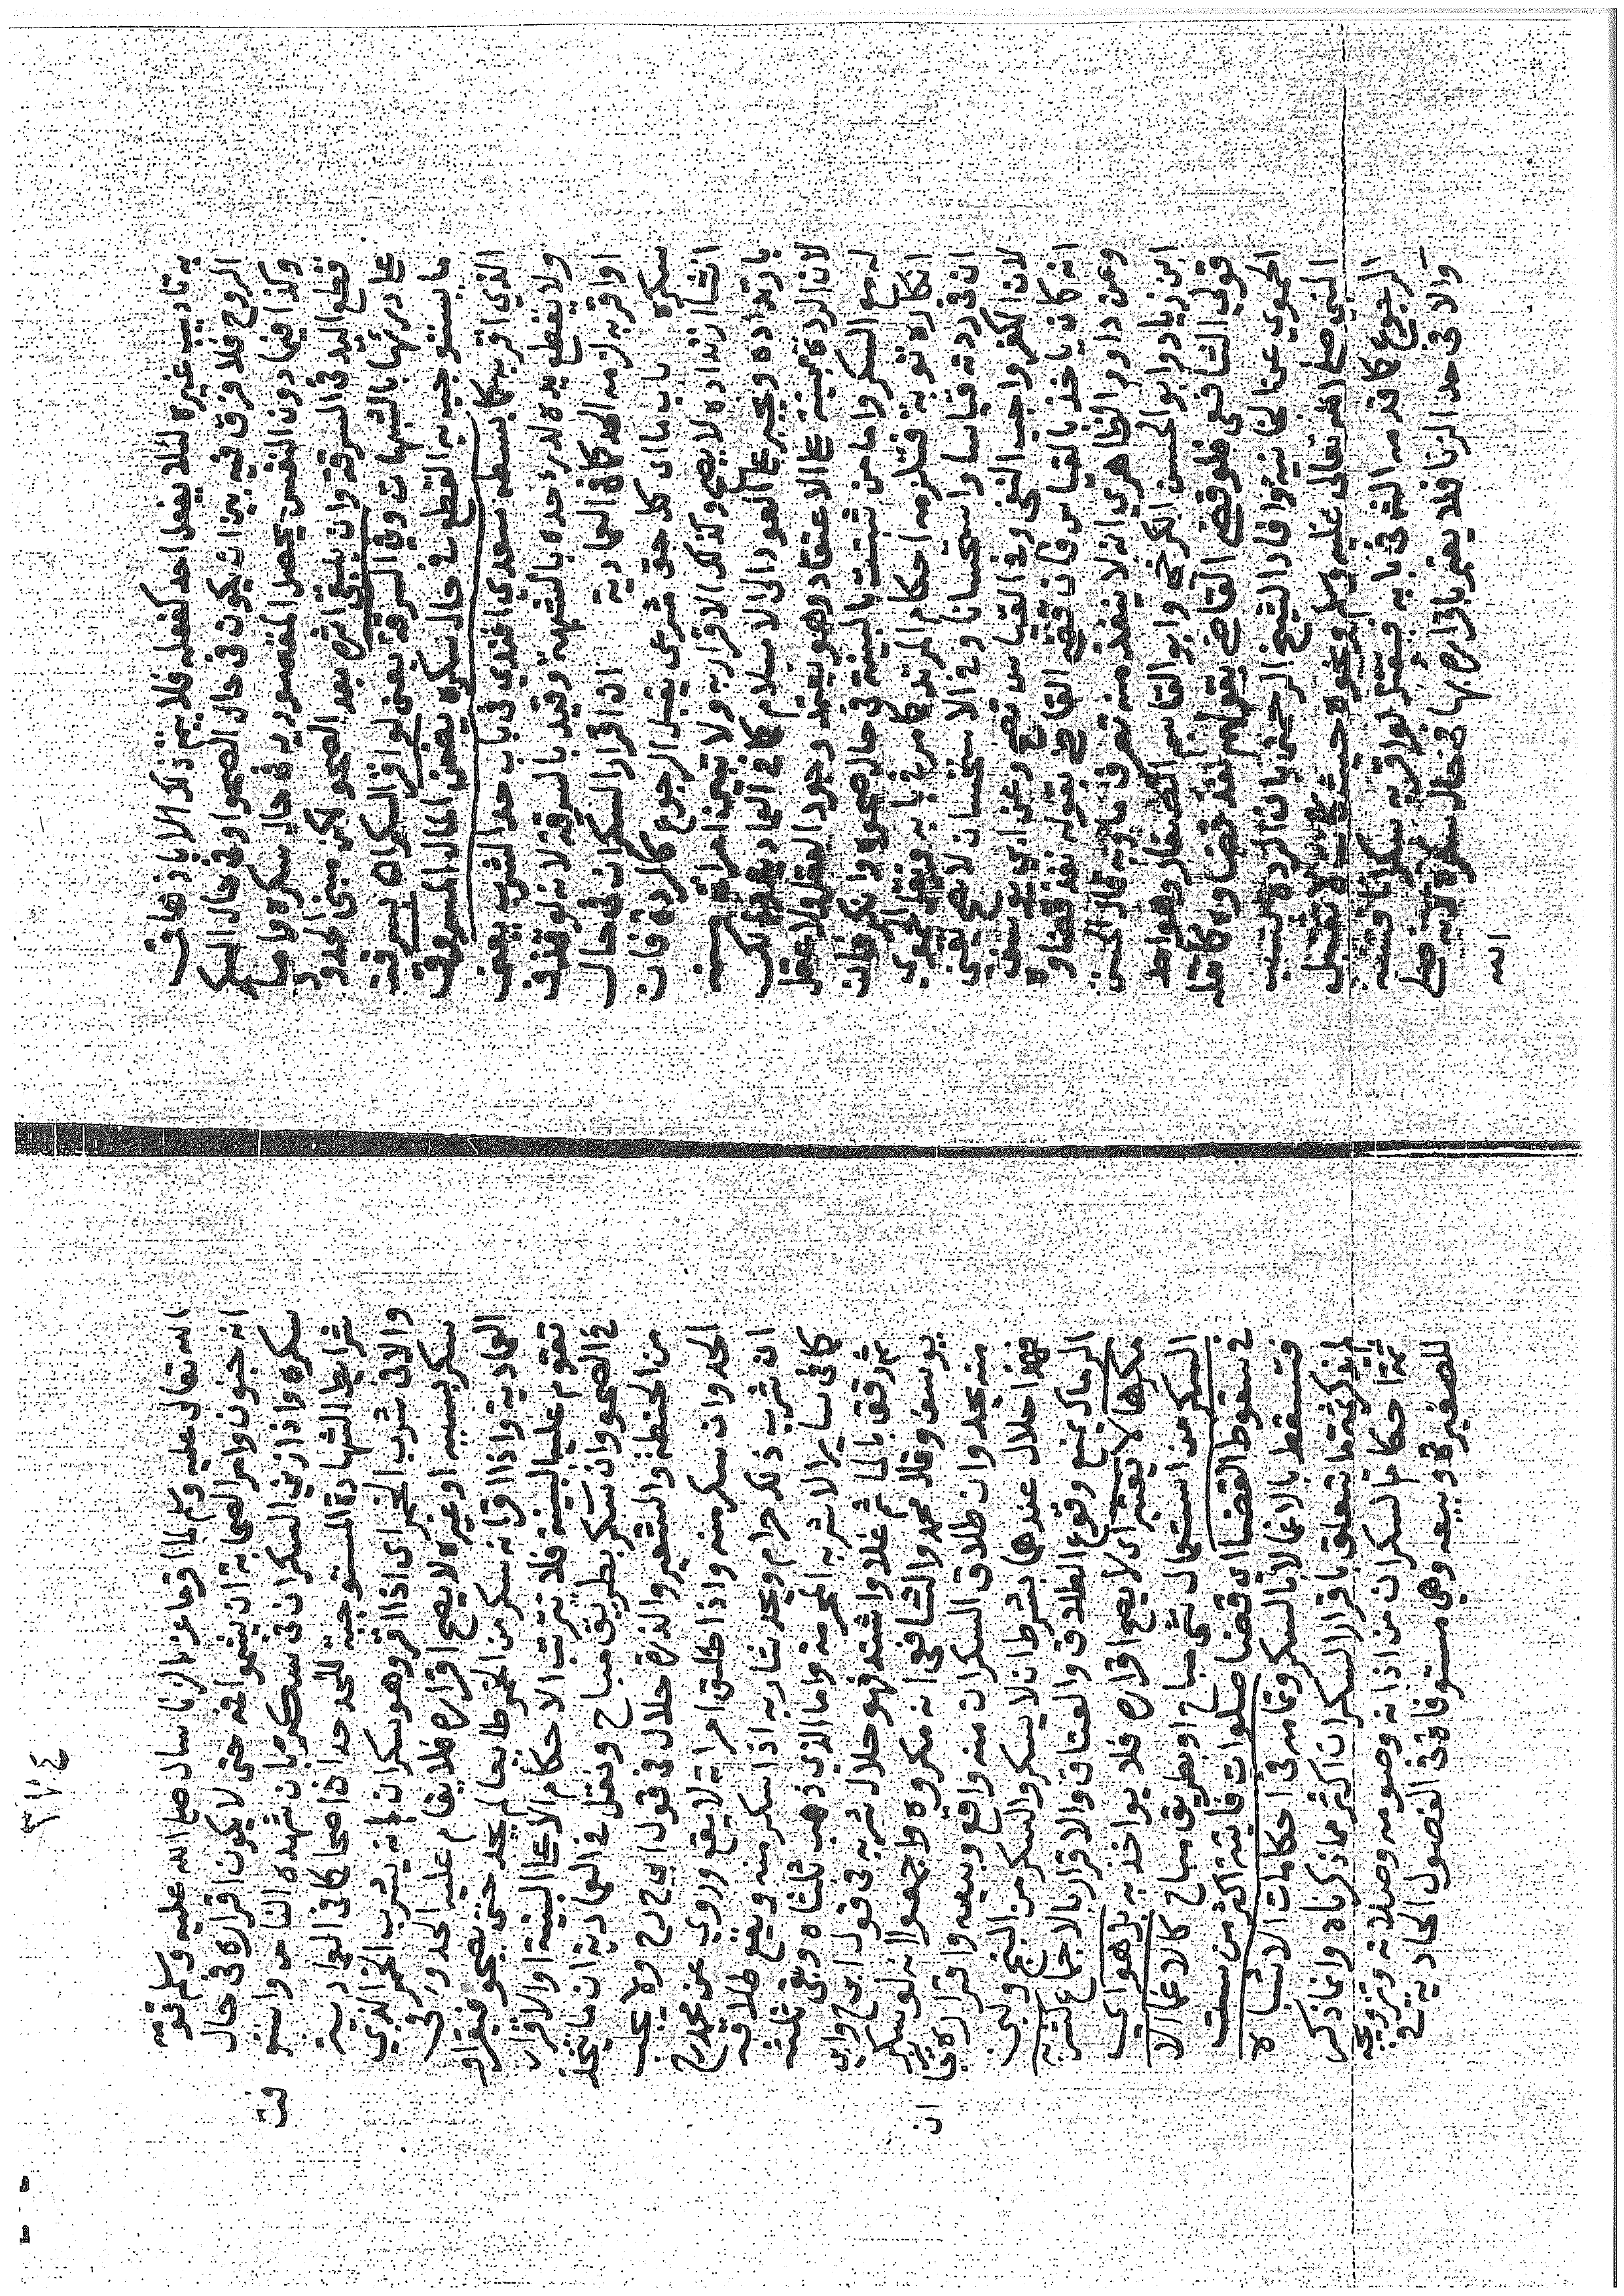 به تاديب غيره لئلا يفعل احد كفعله فلا يتم ذلك الا باذهاف
الروح فلا فرق فيه بين ان يكون في حال الصحو او في حال السكر
وكذا فيما دون النفس يحصل المقصود به في حال سكره واما
قطع اليد في السرقة وان بقي اثره بعد الصحو لكن مبنى الحدود
على درئها بالشبهات وفي السرقة يعني لو اقر السكران بسرقة
ما يستوجب به القطع في حال سكره يضمن المال المسروق
الذي اقر به كما بسطه سعدي افندي في باب حد الشرب يعني
ولا يقطع يده لدرء حده بالشبهة وقيد بالسرقة لانه لو قذف
او اقر به لزمه الحد كما في العمادية ان اقرار السكران في حال
سكره باب ما اى كل حق شرعي يقبل الرجوع كالردة فان
انشا ارتداده لا يصح وكذلك الاقرار به ولا تبين امراته منه
بارتداده ويجبر على العود الى الاسلام كما في العمادية وذلك
لان الردة مبنية على الاعتقاد وهو يعتمد وجود العقل ولا عقل
له مع السكر واما من ثبتت بالبينة في حال صحوه وانكر فان
انكاره توبة فتلزمه احكام المرتد كما مر في بابه ونقل الحموي
ان في ردته قياسا واستحسانا وفي الاستحسان لا تصح يعني
لان الكفر واجب النفي وفي القياس تصح وعن ابي يوسف
انه كان ياخذ بالقياس فان قضى القاضي بقوله نفذ قضاوه
وعن داود الظاهري انه لا ينفذ منه تصرف ما وبه قال الحسن
ابن زياد وابو الحسن الكرخي وابو القاسم الصفار وهو احد
قولي الشافعي فلو قضى القاضي بقولهم نفذ قضاوه كما نقله
الحموي عن الخانية وافاد الشيخ الرحمتي بان الردة بسبب
النبي صلى الله تعالى عليه وسلم ونحوه حيث لا تقبل
الرجوع كما قدمه الشارح في بابه فيقتل لو اقر به سكرانا قوله
والا في حد الزنا فلا يعتبر باقراره بها في حال سكره لانه صلى
الله
الله تعالى عليه وسلم لما اقر ماعز بالزنا سال صلى الله عليه وسلم قومه
انه جنون وامر الصحابة ان يشموا فمه حتى لا يكون اقراره في حال
سكره واذا زنى السكران في سكره بان شهده الناس واستو
شرايط الشهادة المستوجبة للحد حد اذا صحا كما في العمادية
والا في شرب الخمر اى اذا اقر وهو سكران انه يشرب الخمر الذي
سكر بسببه او غيره لا يصح اقراره فلا يقام عليه الحد وفي
العمادية واذا اقر انه سكر من الخمر طايعا لم يحد حتى يصحو فيقر او
تقوم عليه البينة فلا تترتب الاحكام الا على البينة او الاقرار
في الصحو وان سكر بطريق مباح ونقل في العمادية ان ما يتخذ
من الحنطة والشعير والذرة حلال في قول ابي ح رح ولا يجب
الحد وان سكر منه واذا طلق امراته لا يقع وروي عن محمد رح
ان شرب ذلك حرام ويحد شاربه اذا سكر منه ويقع طلاقه
كما في ساير الاشربه المحرمة واما الذي ذهب ثلثاه وبقي ثلثه
ثم رقق بالماء ثم غلا واشتد فهو حلال شربه في قول ابي ح وابي
يوسف وقالا محمد والشافعي انه مكروه واجمعوا انه لو سكر
منه يحد وان طلاق السكران منه واقع وبيعه واقراره جائز
فهذا حلال عندهما بشرط ان لا يسكر والسكر من البنج ولبن
الرماك يمنع وقوع الطلاق والعتاق والاقرار بالاجماع كشربه
مكرها لا يعتبر اى لا يصح اقراره فلا يواخذ به بل هو اي
السكر من استعمال شئ مباح او بطريق مباح كالاغماء الا
في سقوط القضاء اى قضا صلوات فايتة اكثر من ست
فتسقط بالاغماء لا بالسكر وتمامه في احكامات الاشباه
لم نذكر ثمة ما تتعلق باقرار السكران اكثر مما ذكرناه وانما ذكر
ثمة احكام السكران من اذانه وصومه وصلاته وتزويجه
للصغير وبيعه وهي مستوفاة في الفصول العمادية في